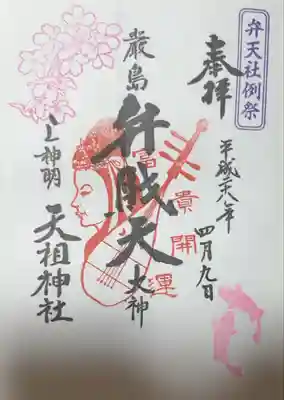 弁天社例祭
奉拝
平成二十八年
四月九日
厳島
弁財天
大神
富貴開運
上神明
天祖神社